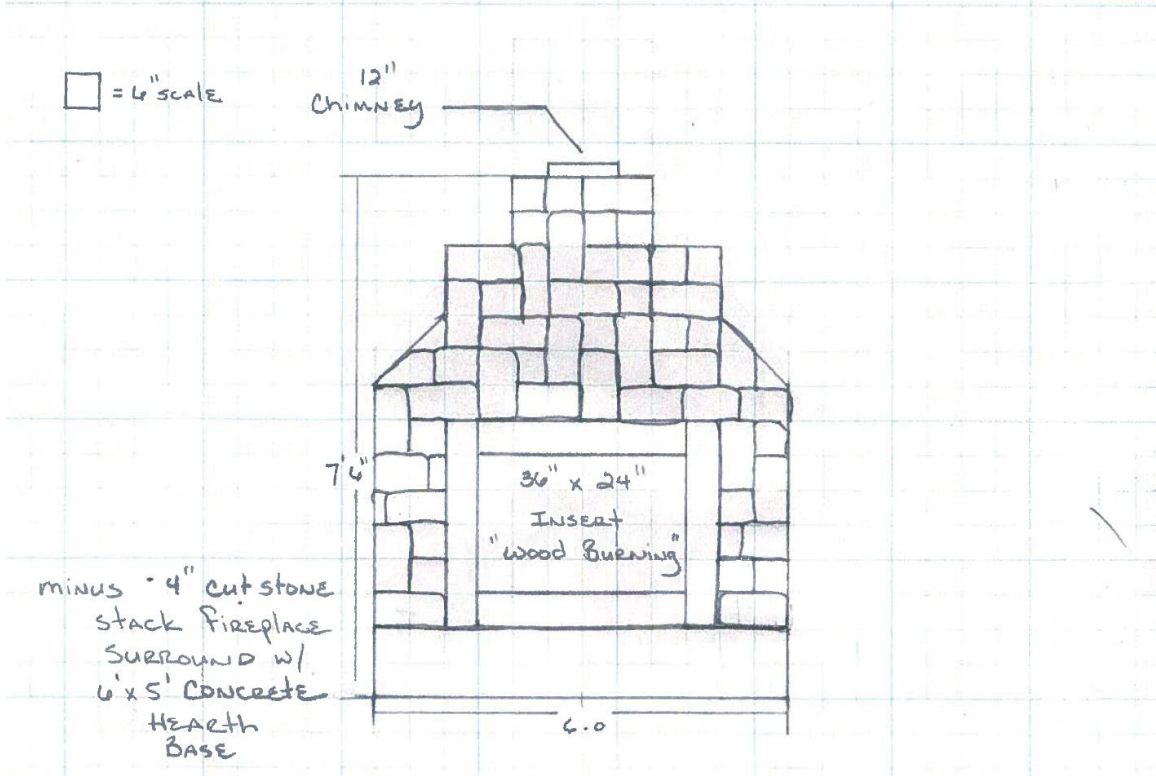 = 6" scale
12"
Chimney
7'6"
36" x 24"
Insert
"Wood Burning"
minus - 4" cut stone
stack fireplace
surround w/
6'x5' concrete
Hearth
Base
6.0